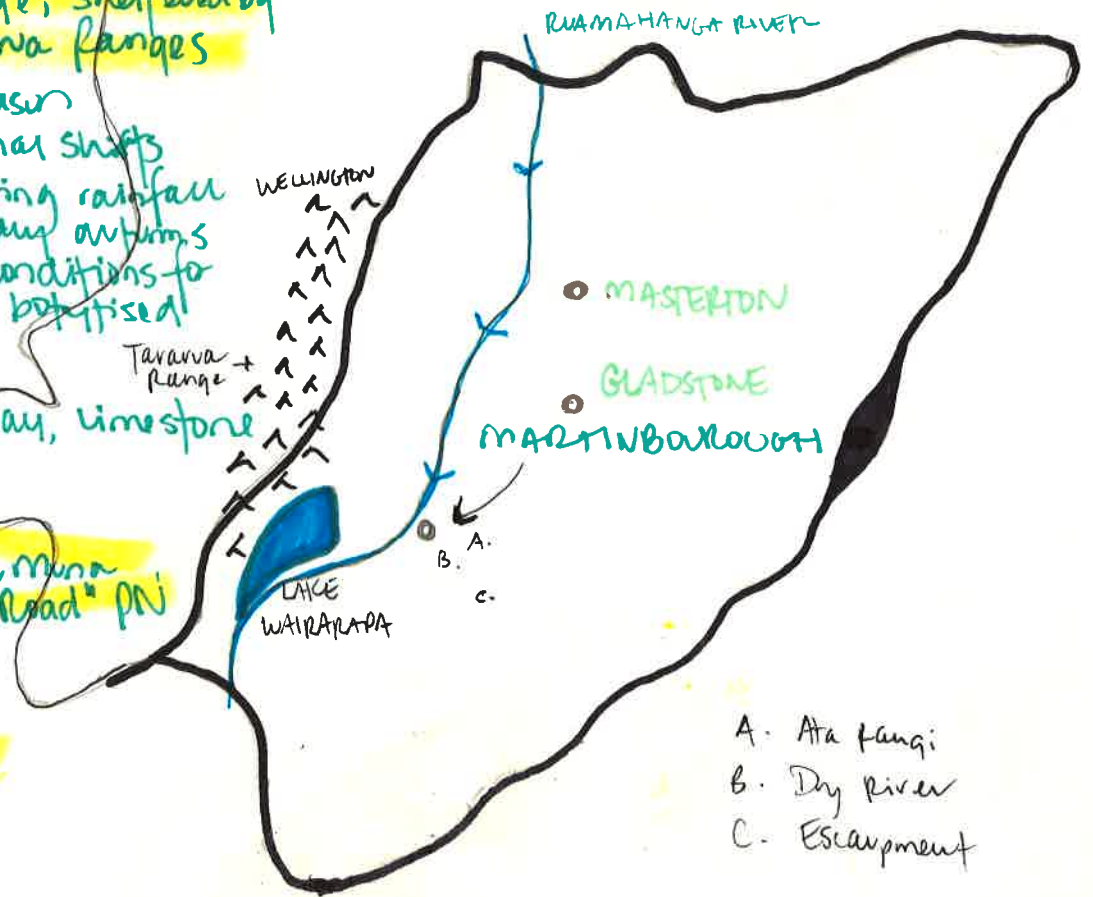 ge, sheltered by
wa Ranges
ason
nal shifts
ing rainfall
autumns
onditions for
botrytised
ay, limestone
, Muna
Road" PN
RUAMAHANGA RIVER
WELLINGTON
Tararua
Range
MASTERTON
GLADSTONE
MARTINBOUROUGH
A.
B.
C.
LAKE
WAIRARAPA
A. Ata Rangi
B. Dry River
C. Escarpment